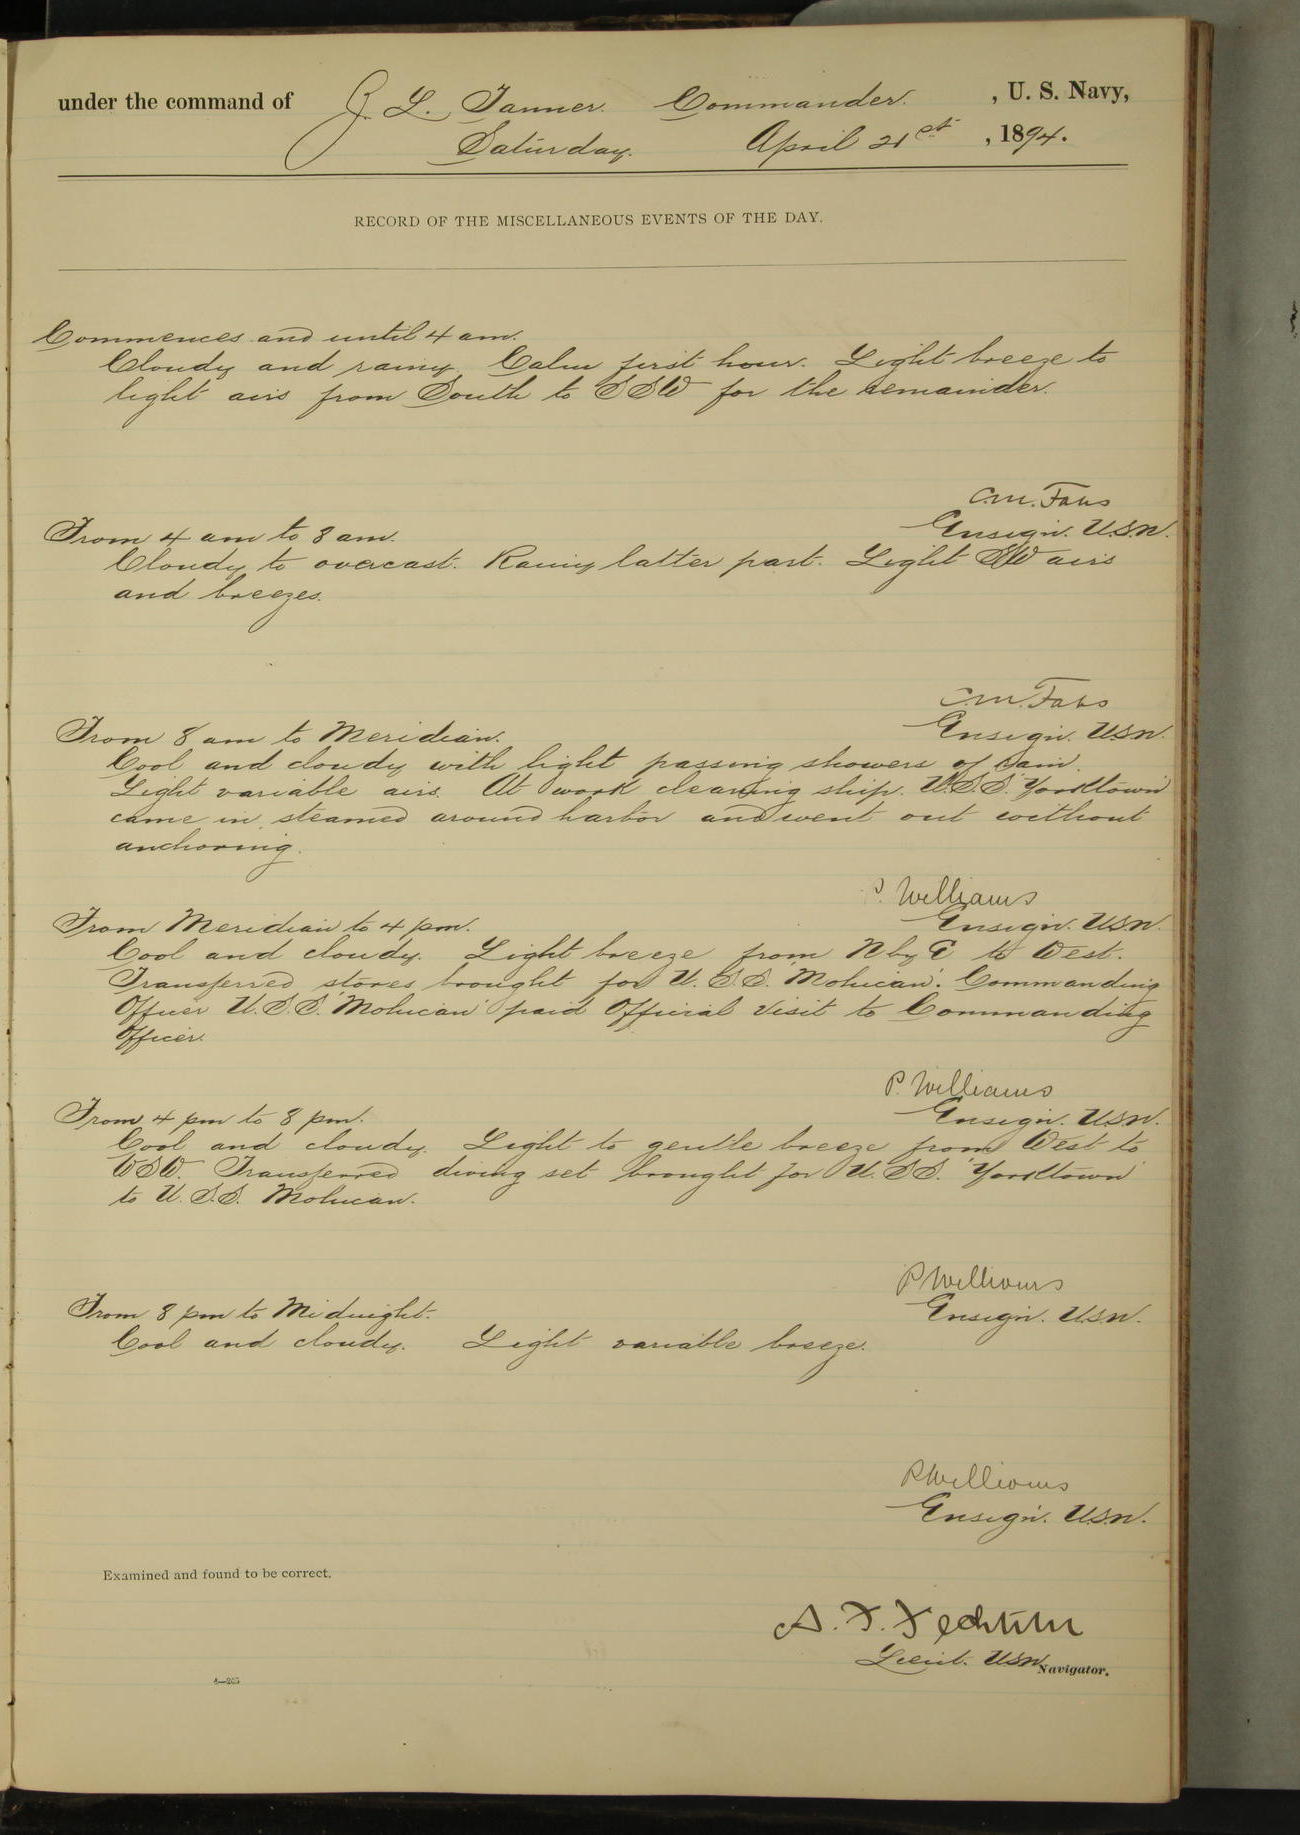 under the command of Z. L. Tanner. Commander. , U. S. Navy,
Saturday. April 21st , 1894.
RECORD OF THE MISCELLANEOUS EVENTS OF THE DAY.
Commences and until 4 am.
Cloudy and rainy. Calm first hour. Light breeze to
light airs from South to SSW for the remainder.
C.M. Fahs
Ensign. U.S.N.
From 4 am to 8 am.
Cloudy to overcast. Rainy latter part. Light SW airs
and breezes.
C.M. Fahs
Ensign. U.S.N.
From 8 am to Meridian.
Cool and cloudy with light passing showers of rain.
Light variable airs. At work cleaning ship. U.S.S. "Yorktown"
came in, steamed around harbor and went out without
anchoring.
P. Williams
Ensign. U.S.N.
From Meridian to 4 pm.
Cool and cloudy. Light breeze from N by E to West.
Transferred stores brought for U.S.S. "Mohican". Commanding
Officer U.S.S. "Mohican" paid Official visit to Commanding
Officer.
P. Williams
Ensign. U.S.N.
From 4 pm to 8 pm.
Cool and cloudy. Light to gentle breeze from West to
WSW. Transferred diving set brought for U.S.S. "Yorktown"
to U.S.S. Mohican.
P Williams
Ensign. U.S.N.
From 8 pm to Midnight.
Cool and cloudy. Light variable breeze.
P Williams
Ensign. U.S.N.
Examined and found to be correct.
A. F. Fechteler
Lieut. U.S.N. Navigator.